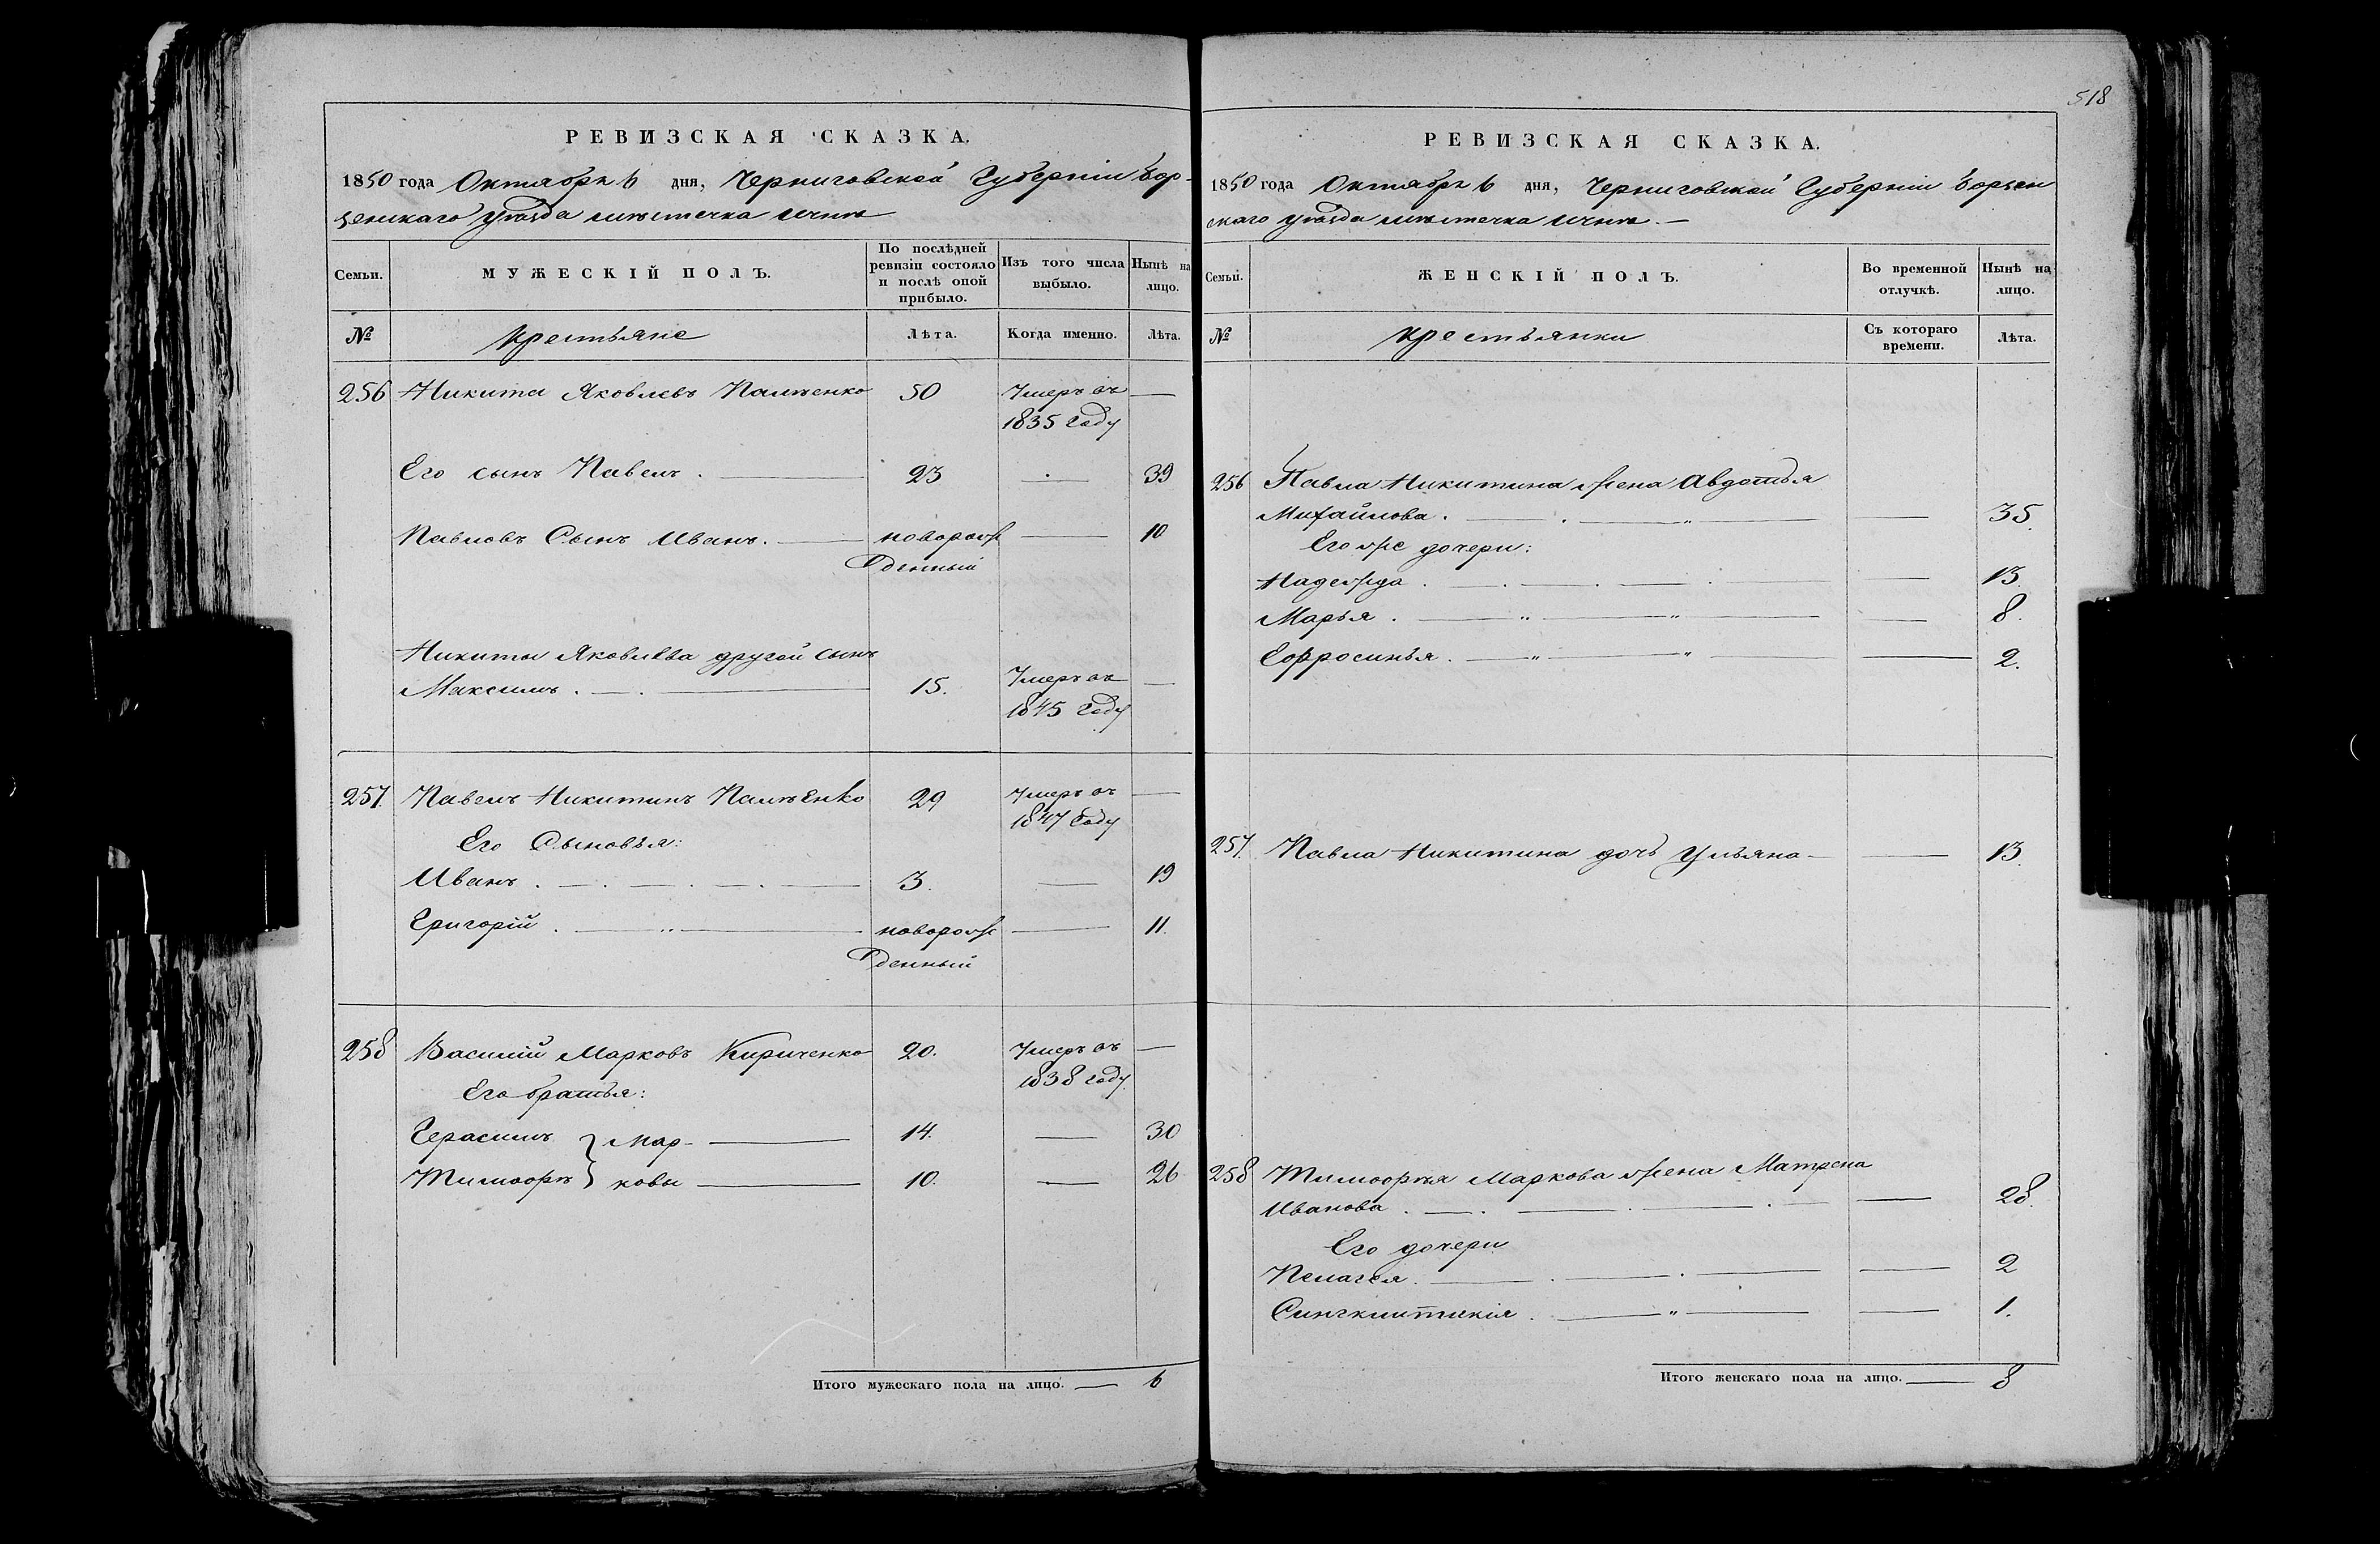 РЕВИЗСКАЯ СКАЗКА.
1850 года Октября 6 дня, Черниговской Губерніи Бор-
зенскаго уѣзда мѣстечка Ични
Семьи. МУЖЕСКІЙ ПОЛЪ. По послѣдней ревизіи состояло и послѣ оной прибыло. Изъ того числа выбыло. Нынѣ на лицо.
№ крестьяне Лѣта. Когда именно. Лѣта.
256 Никита Яковлевъ 50 Умеръ въ —
1835 году
Его сынъ Павелъ. 23 — 39
Павловъ Сынъ Иванъ. новорож — 10
денный
Никиты Яковлева другой сынъ
Максимъ. 15. Умеръ въ —
1845 году
257. Павелъ Никитинъ 29 Умеръ въ —
1847 году
Его Сыновья:
Иванъ. 3. — 19
Григорій. новорож — 11.
денный
258 Василій Марковъ Кириченко 20. Умеръ въ —
1838 году.
Его братья:
Герасимъ } Мар- 14. — 30
Тимофѣй } ковы 10. — 26
Итого мужескаго пола на лицо. — 6
518
РЕВИЗСКАЯ СКАЗКА.
1850 года Октября 6 дня, Черниговской Губерніи Борзен
скаго уѣзда мѣстечка Ични. —
Семьи. ЖЕНСКІЙ ПОЛЪ. Во временной отлучкѣ. Нынѣ на лицо.
№ крестьянки Съ котораго времени. Лѣта.
256 Павла Никитина жена Авдотья
Михайлова. — 35.
Его же дочери:
Надежда. — 13.
Марья. — 8.
Ефросинья. — 2.
257. Павла Никитина дочь Ульяна — 13.
258 Тимофѣя Маркова жена Матрена
Иванова. — 28.
Его дочери
Пелагея. — 2
Синклитикія. — 1.
Итого женскаго пола на лицо. — 8